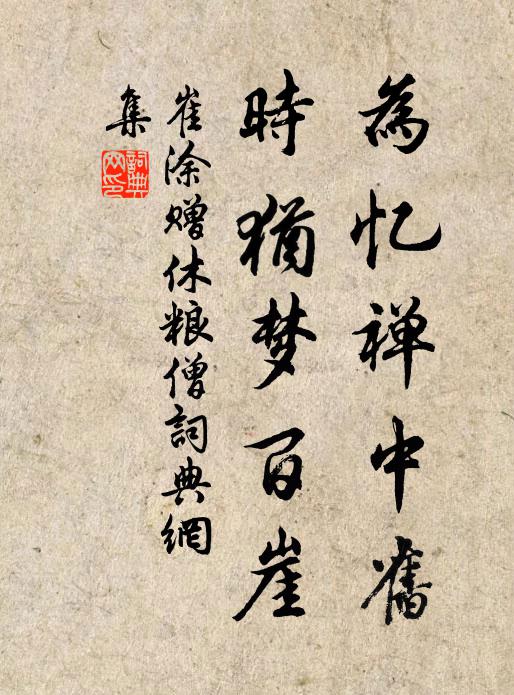 為忆禅中舊
時猶梦百崖
崔涂赠休粮僧詞典網
集
詞典
网印